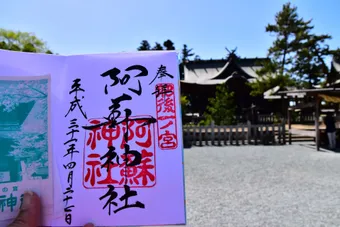 奉拝
肥後一ノ宮
阿蘇神社
阿蘇
神社
平成三十一年四月二十一日